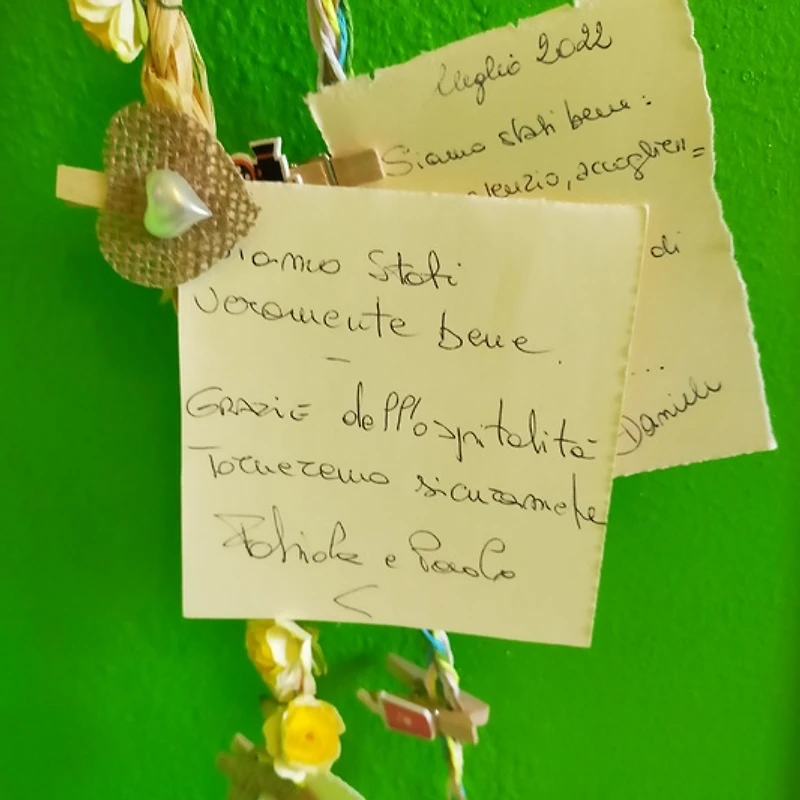 Luglio 2022
Siamo stati bene:
silenzio, accoglien=
di
...
Daniele
Siamo Stati
veramente bene.
–
GRAZIE dell'ospitalità
Torneremo sicuramete
Fabiola e Paolo